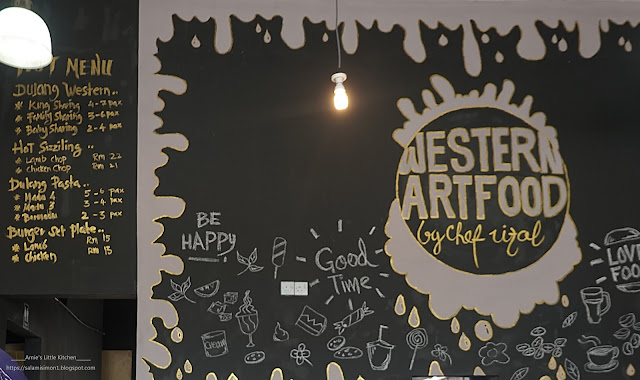 MENU
Dulang Western..
* King Sharing 4-7 pax
* Family Sharing 3-6 pax
* Baby Sharing 2-4 pax
Hot Sizzling..
* Lamb chop RM 22
* Chicken Chop RM 21
Dulang Pasta..
* Mama 4 5-6 pax
* Mama 3 3-4 pax
* 2-3 pax
Burger Set Plate..
* Lamb RM 15
* Chicken RM 13
BE
HAPPY
Good
Time
WESTERN
ARTFOOD
by chef rizal
LOVE
FOOD
_____Annie's Little Kitchen_____
https://salamisimon1.blogspot.com